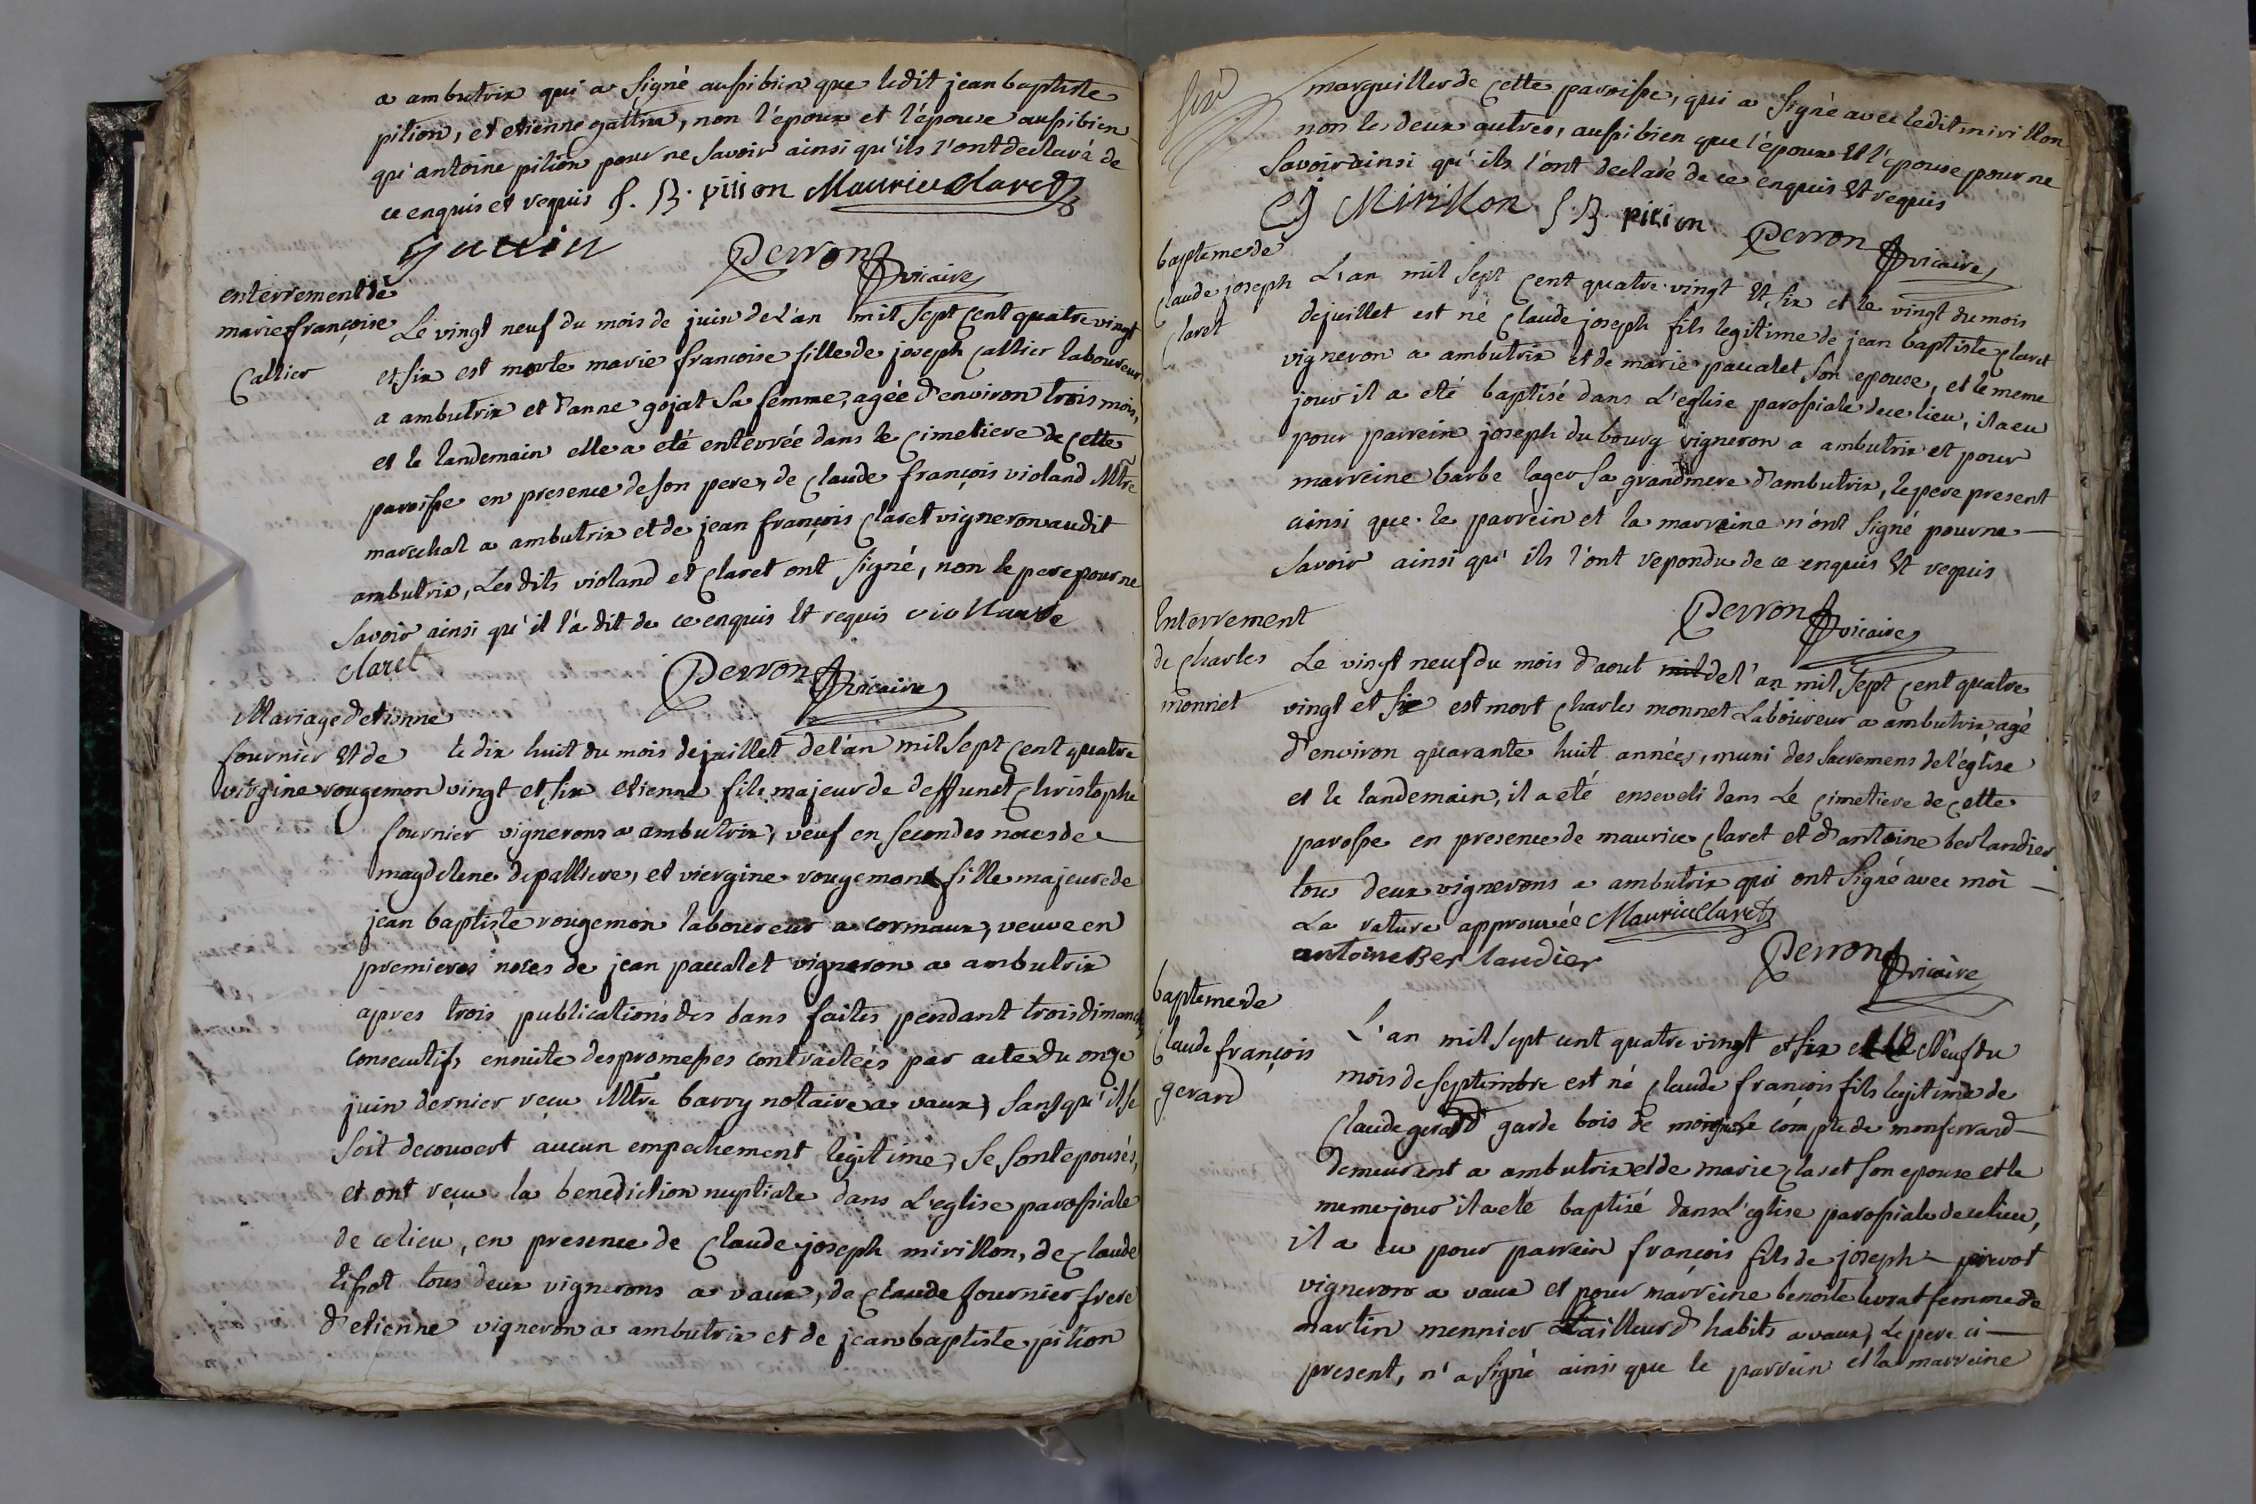 a ambutrix qui a signé aussi bien que ledit jean baptiste
pition, et etienne gattin, non l'epoux et l'épouse aussi bien
qu'antoine pition pour ne savoir ainsi qu'ils l'ont declaré de
ce enquis et requis J. B. pition Maurice Claret
gattin Perron vicaire
enterrement de
marie françoise
Callier
Le vingt neuf du mois de juin de l'an mil sept cent quatre vingt
et six est morte marie francoise fille de joseph Callier laboureur
a ambutrix et d'anne gojat sa femme, agée d'environ trois mois,
et le landemain elle a eté enterrée dans le cimetiere de cette
paroisse en presence de son pere, de claude françois violand Mtre
marechal a ambutrix et de jean françois claret vigneron audit
ambutrix, Les dits violand et claret ont signé, non le pere pour ne
savoir ainsi qu'il l'a dit de ce enquis et requis viollande
claret Perron vicaire
Mariage d'etienne
fournier et de
virgine rougemon
le dix huit du mois de juillet de l'an mil sept cent quatre
vingt et six etienne fils majeur de deffunct Christophe
fournier vignerons a ambutrix, veuf en secondes noces de
magdelene depalliere, et viergine rougemont fille majeure de
jean baptiste rougemon laboureur a cormaux, veuve en
premieres noces de jean paccalet vigneron a ambutrix
apres trois publications des bans faites pendant trois dimanch
consecutifs ensuite des promesses contractées par acte du onze
juin dernier reçu Mtre barry notaire a vaux, sans qu'il se
soit decouvert aucun empechement legitime, se sont epousés,
et ont reçu la benediction nuptiale dans L'eglise parossiale
de ce lieu, en presence de Claude joseph mirillon, de claude
tissot tous deux vignerons a vaux, de claude fournier frere
d'etienne vigneron a ambutrix et de jean baptiste pition
marguiller de cette paroisse, qui a signé avec ledit mirillon
non les deux autres, aussi bien que l'époux et l'épouse pour ne
savoir ainsi qu'ils l'ont declaré de ce enquis et requis
CJ Mirillon J B pition Perron vicaire
bapteme de
claude joseph
claret
L'an mil sept cent quatre vingt et six et le vingt du mois
de juillet est né claude joseph fils legitime de jean baptiste claret
vigneron a ambutrix et de marie paccalet son epouse, et le meme
jour il a eté baptisé dans L'eglise parossiale de ce lieu, il a eu
pour parrein joseph dubourg vigneron a ambutrix et pour
marreine barbe lager sa grandmere d'ambutrix, le pere present
ainsi que le parrein et la marreine n'ont signé pour ne
savoir ainsi qu'ils l'ont repondu de ce enquis et requis
Perron vicaire
Enterrement
de charles
monnet
Le vingt neuf du mois d'aout mil de l'an mil sept cent quatre
vingt et six est mort charles monnet Laboureur a ambutrix, agé
d'environ quarante huit années, muni des sacremens de l'église
et le landemain, il a été enseveli dans Le cimetiere de cette
parosse en presence de maurice claret et d'antoine berlandier
tous deux vignerons a ambutrix qui ont signé avec moi
La rature approuvée Maurice Claret
antoine Berlaudier Perron vicaire
bapteme de
claude françois
gerard
L'an mil sept cent quatre vingt et six et le neuf du
mois de septembre est né claude françois fils legitime de
claude gerard garde bois de compte de monferrand
demeurant a ambutrix et de marie claret son epouse et le
meme jour il a eté baptisé dans L'eglise parossiale de ce lieu,
il a eu pour parrain françois fils de joseph pirrot
vigneron a vaux et pour marreine benoite femme de
martin mennier tailleur d'habits a vaux, Le pere ci
present, n'a signé ainsi que le parrein et la marreine